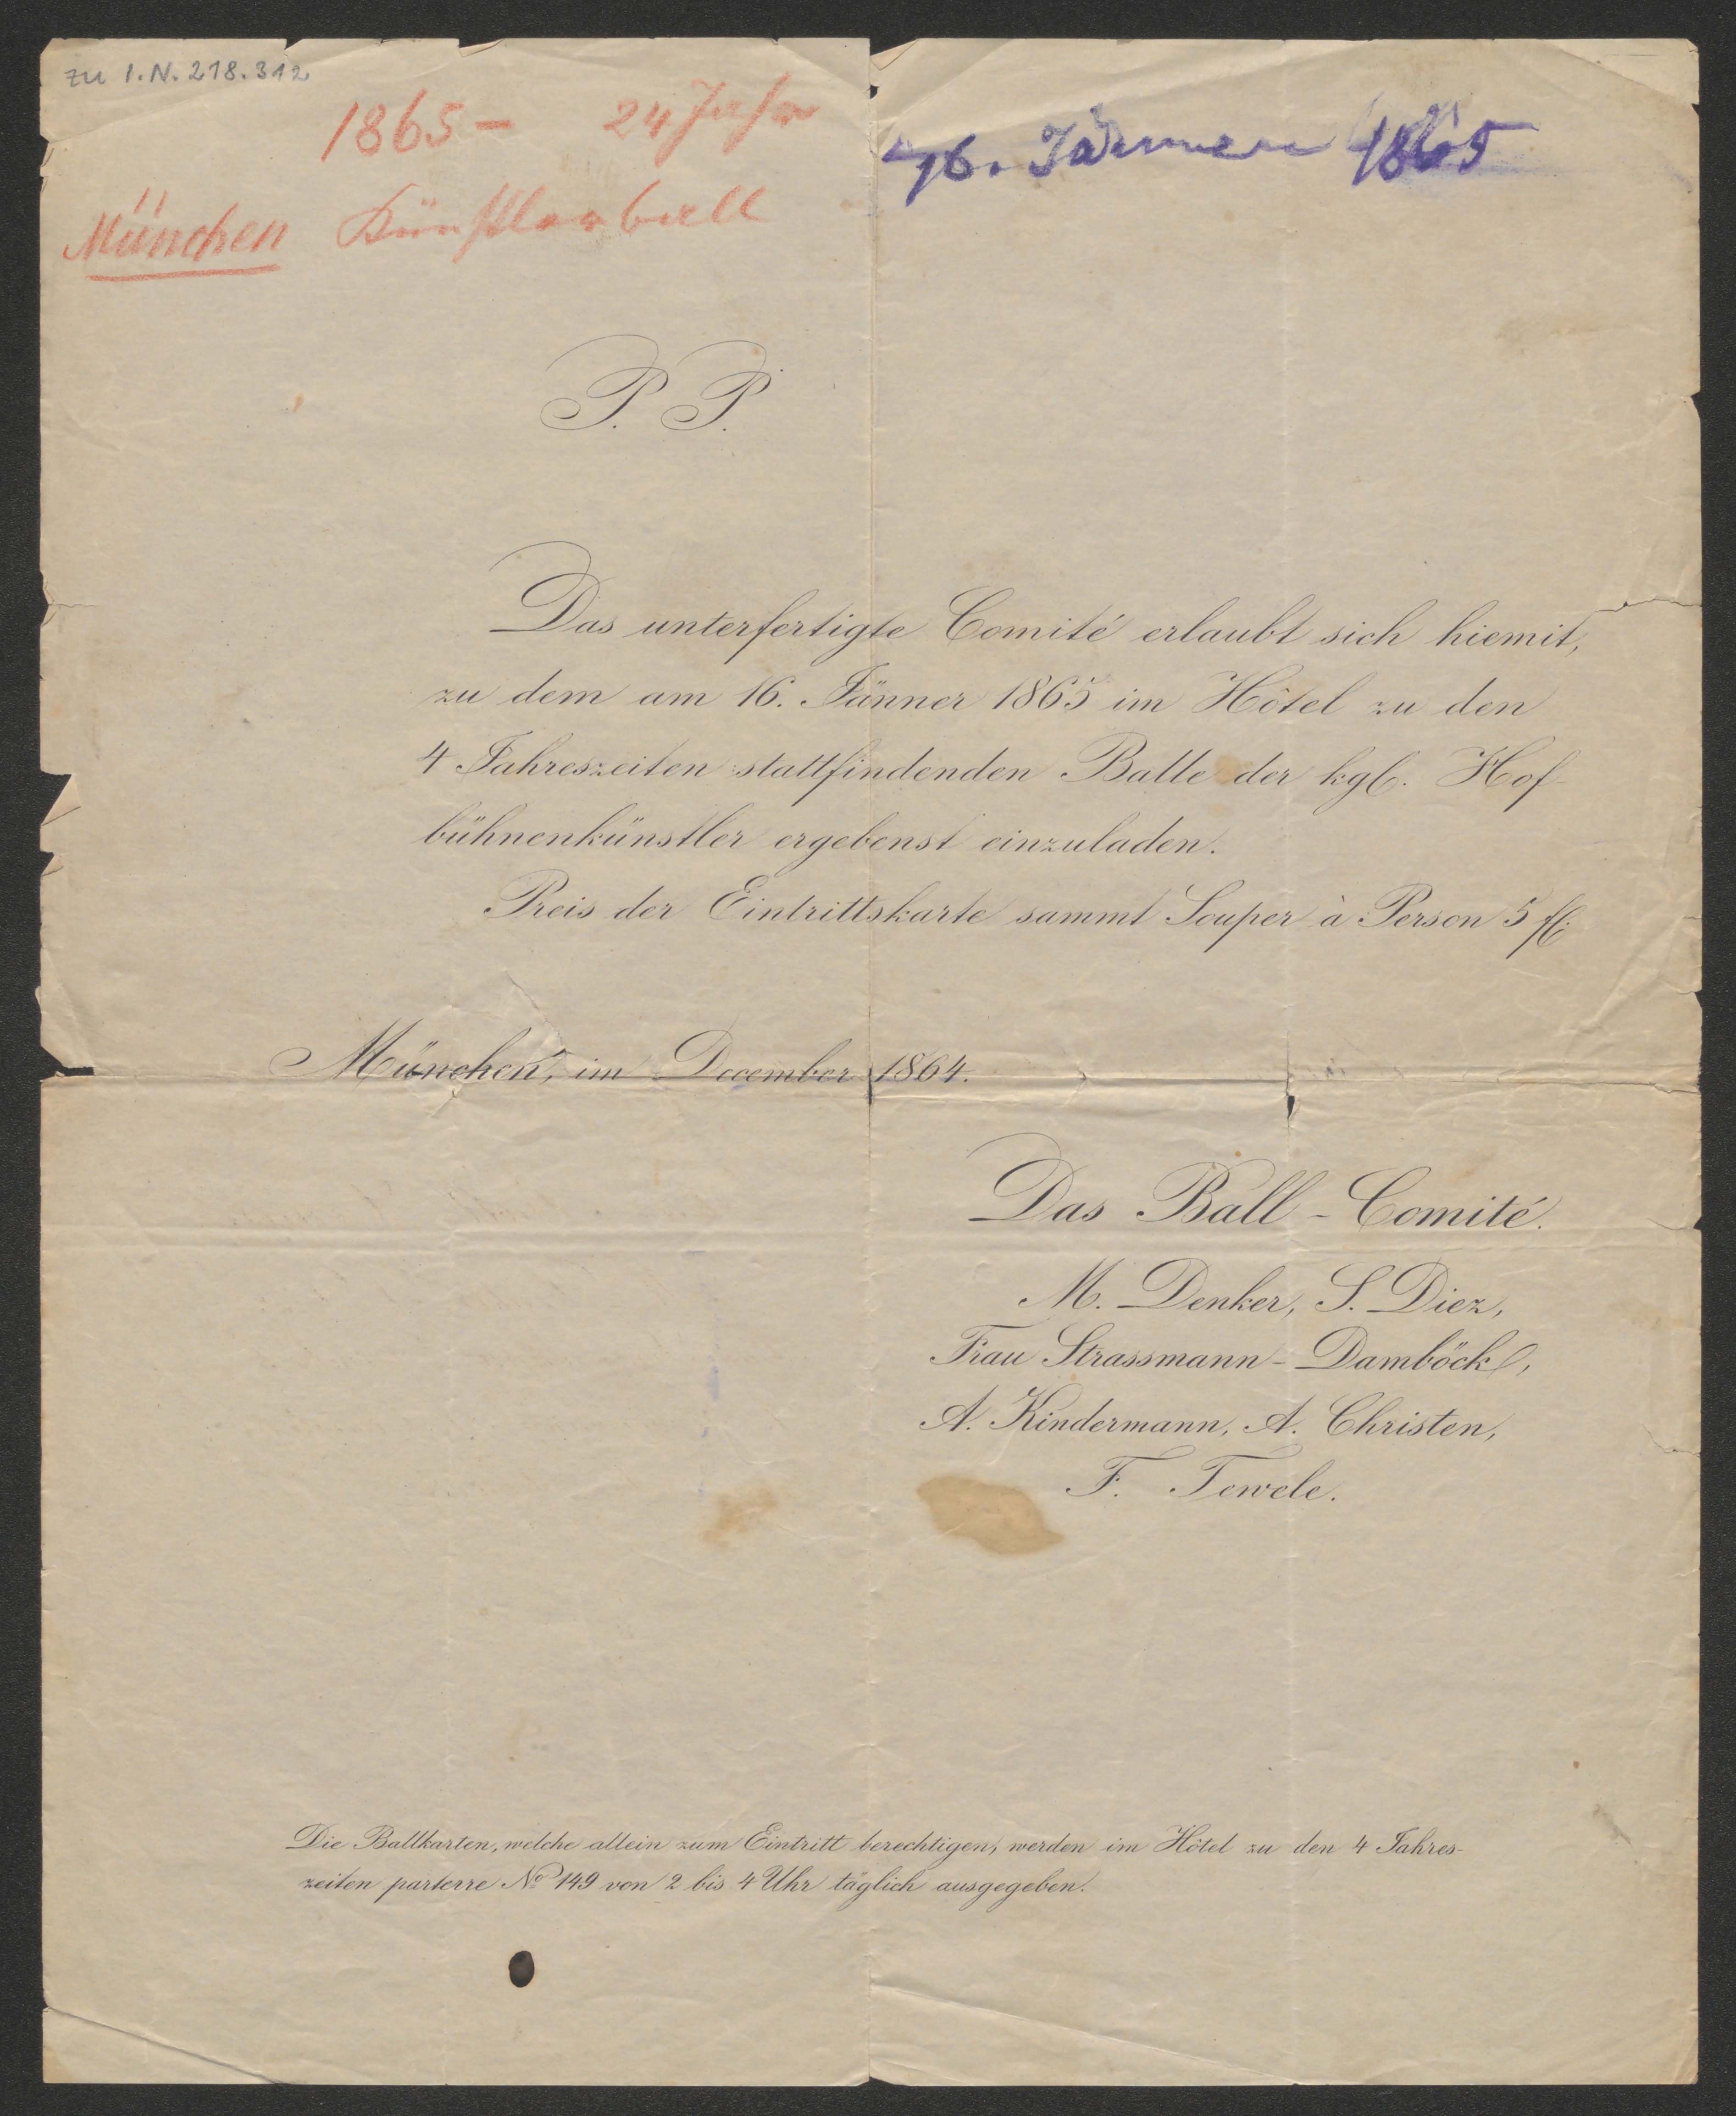 zu I.N. 218.312
1865 - 24 Jahr
München Künstlerball
16. Jänner 1865
P. P.
Das unterfertigte Comité erlaubt sich hiemit,
zu dem am 16. Jänner 1865 im Hôtel zu den
4 Jahreszeiten stattfindenden Balle der kgl. Hof-
bühnenkünstler ergebenst einzuladen.
Preis der Eintrittskarte sammt Souper à Person 5 fl.
München, im December 1864.
Das Ball-Comité.
M. Denker, S. Diez,
Frau Strassmann-Damböck,
A. Kindermann, A. Christen,
F. Tewele.
Die Ballkarten, welche allein zum Eintritt berechtigen, werden im Hôtel zu den 4 Jahres-
zeiten parterre No 149 von 2 bis 4 Uhr täglich ausgegeben.